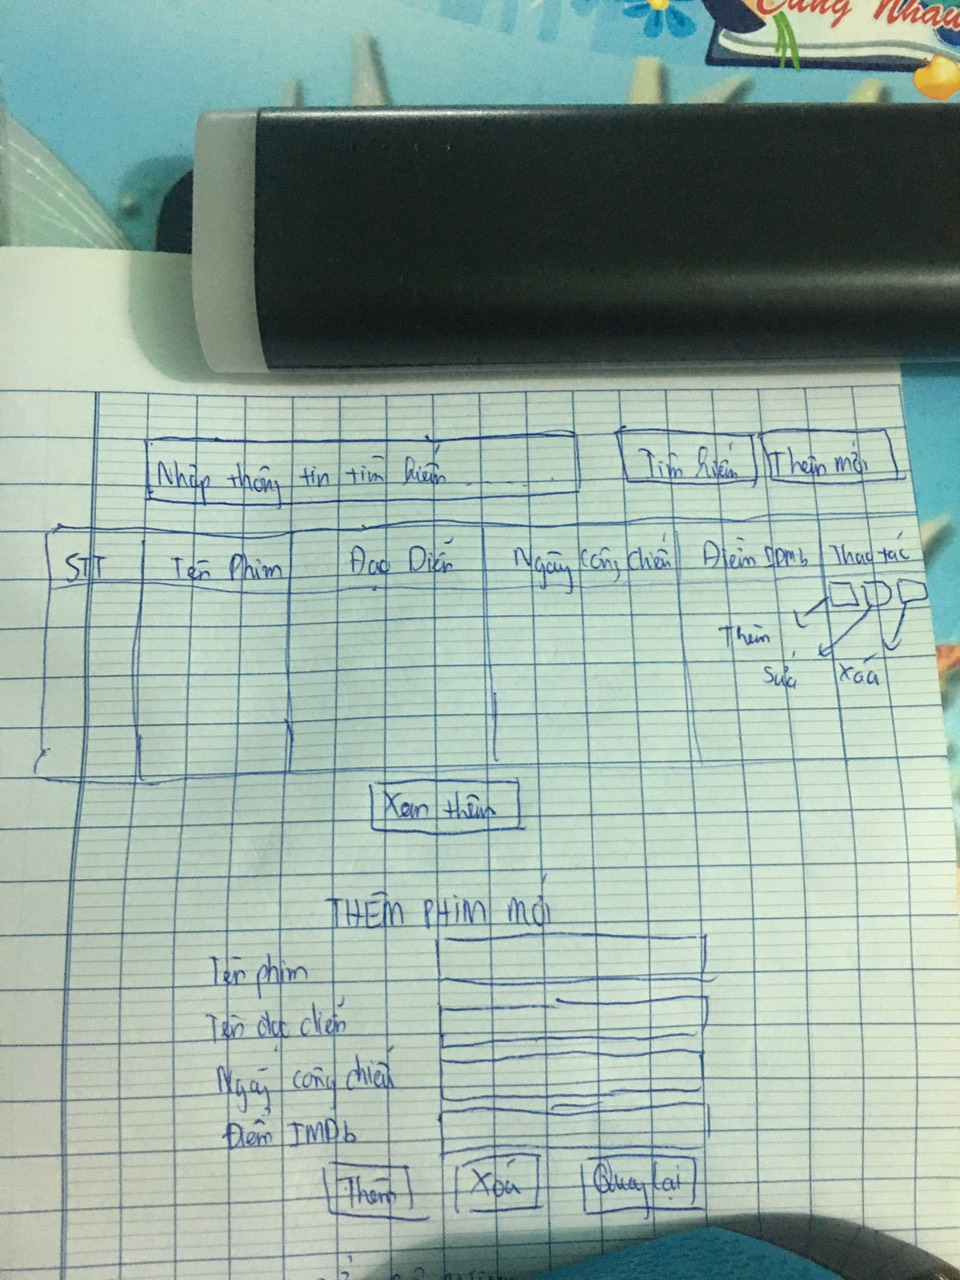 Cùng Nhau
Nhập thông tin tìm kiếm Tìm kiếm Thêm mới
STT Tên Phim Đạo Diễn Ngày Công Chiếu Điểm IDMb Thao tác
Thêm
Sửa Xóa
Xem thêm
THÊM PHIM MỚI
Tên phim
Tên đạo diễn
Ngày công chiếu
Điểm IMDb
Thêm Xóa Quay lại